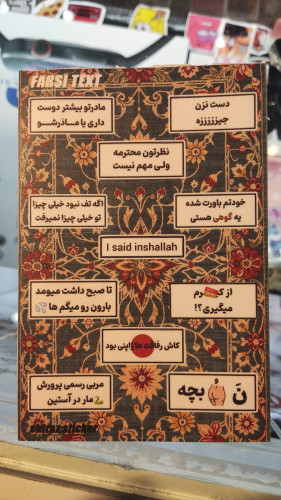 FARSI TEXT
دست نزن
جیززززه
مادرتو بیشتر دوست
داری یا مــاذرشــو
نظرتون محترمه
ولی مهم نیست
خودتم باورت شده
یه گوهی هستی
اگه تف نبود خیلی چیزا
تو خیلی چیزا نمیرفت
I said inshallah
از کـ رم
میگیری؟!
تا صبح داشت میومد
بارون رو میگم ها
کاش رفاقت ها ژاپنی بود
نَ بچه
مربی رسمی پرورش
مار در آستین